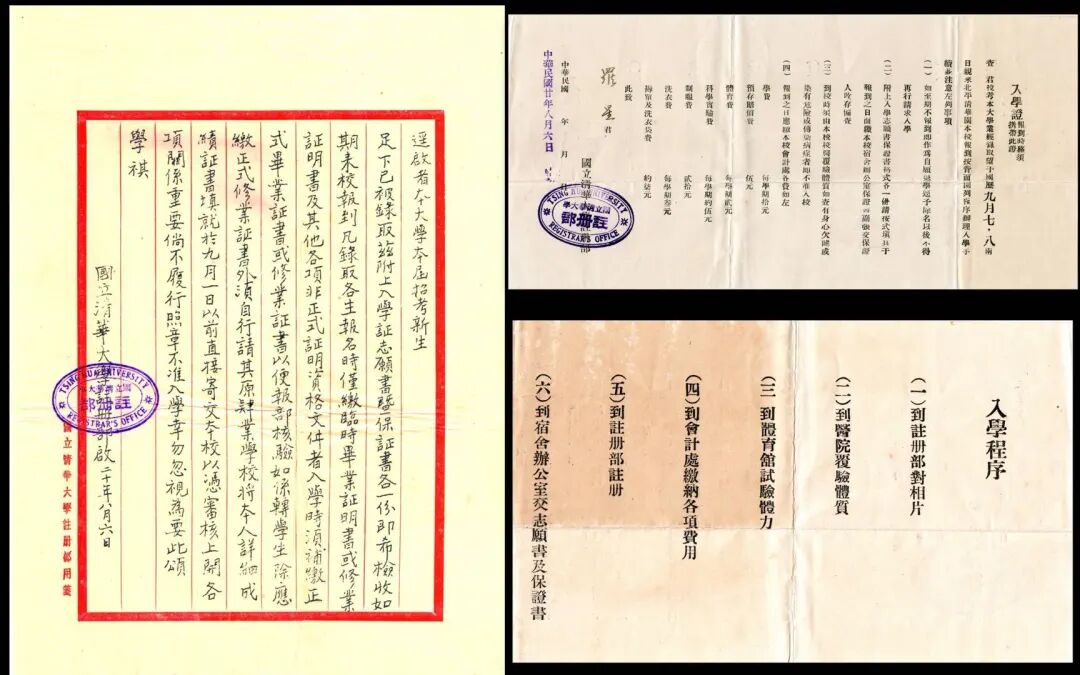 逕啟者本大學本屆招考新生
足下已被錄取茲附上入學証志願書暨保証書各一份即希檢收如
期來校報到凡錄取各生報名時僅繳臨時畢業証明書或修業
証明書及其他各項非正式証明資格文件者入學時須補繳正
式畢業証書或修業証書以便報部核驗如係轉學生除應
繳正式修業証書外須自行請其原肄業學校將本人詳細成
績証書填就於九月一日以前直接寄交本校以憑審核上開各
項關係重要倘不履行照章不准入學幸勿忽視為要此頌
學祺
國立清華大學註冊部啟二十年八月六日
TSING HUA UNIVERSITY
國立清華大學
註冊部
REGISTRAR'S OFFICE
國立清華大學註冊部用箋
入學證
報到時務須
携帶此證
查 君投考本大學業經錄取望于國曆九月七,八兩
日親來北平清華園本校報到按背面園列程序辦理入學手
續並注意左列事項
(一)如至期不報到即作為自願退學逕予除名以後不得
再行請求入學
(二)附上入學志願書保證書格式各一份請按式填具于
報到之日面繳本校宿舍辦公室保證書副張交保證
人收存備查
(三)到校時須由本校校醫覆驗體質如查有身心欠健或
染有危險或傳染病症者即不准入校
(四)報到之日應繳本校會計處各費如左
學費 每學期拾元
預存賠償費 伍元
體育費 每學期貳元
科學實驗費 每學期約伍元
制服費 貳拾元
洗衣費 每學期叁元
褥單及洗衣袋費 約柒元
此致
羅星君
國立清華大學註冊部
中華民國 年 月
中華民國廿年八月六日
TSING HUA UNIVERSITY
國立清華大學
註冊部
REGISTRAR'S OFFICE
入學程序
(一)到註册部對相片
(二)到醫院覆驗體質
(三)到體育舘試驗體力
(四)到會計處繳納各項費用
(五)到註册部註册
(六)到宿舍辦公室交志願書及保證書